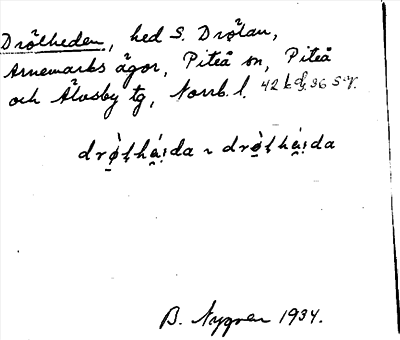 Drölheden, hed S. Drölan,
Arnemarks ägor, Piteå sn, Piteå
och Älvsby tg, Norrb. l. 42
drø̀l̥hái̯da ~ drø̀l̥hái̯da
B. Nygren 1934.